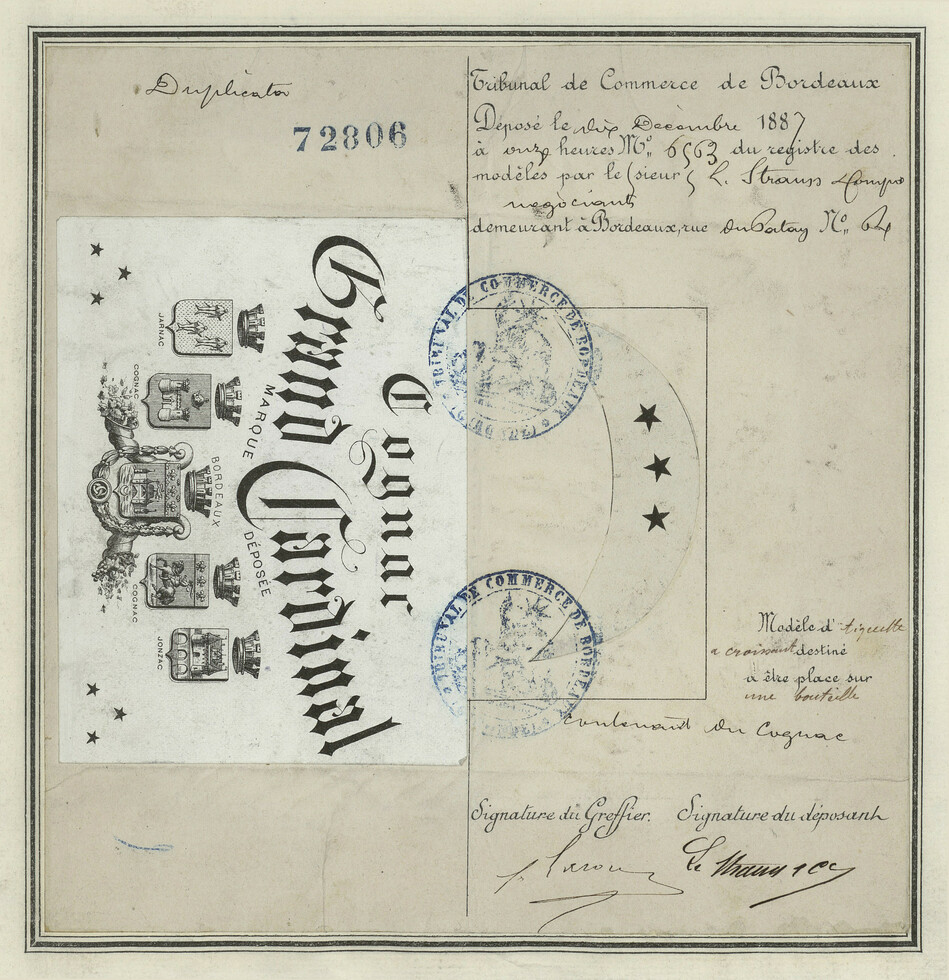 Duplicata
72806
Cognac
Grand Cardinal
MARQUE DÉPOSÉE
JARNAC
COGNAC
BORDEAUX
COGNAC
JONZAC
Tribunal de Commerce de Bordeaux
Déposé le dix Décembre 1887
à onze heures No 6563 du registre des
modèles par le sieurs L. Strauss & Compie
négociants
demeurant à Bordeaux, rue du No 64
TRIBUNAL DE COMMERCE DE BORDEAUX
TRIBUNAL DE COMMERCE DE BORDEAUX
Modèle d'étiquette
a croissant destiné
à être place sur
une bouteille
contenant du Cognac
Signature du Greffier. Signature du déposant
L. Strauss & Cie